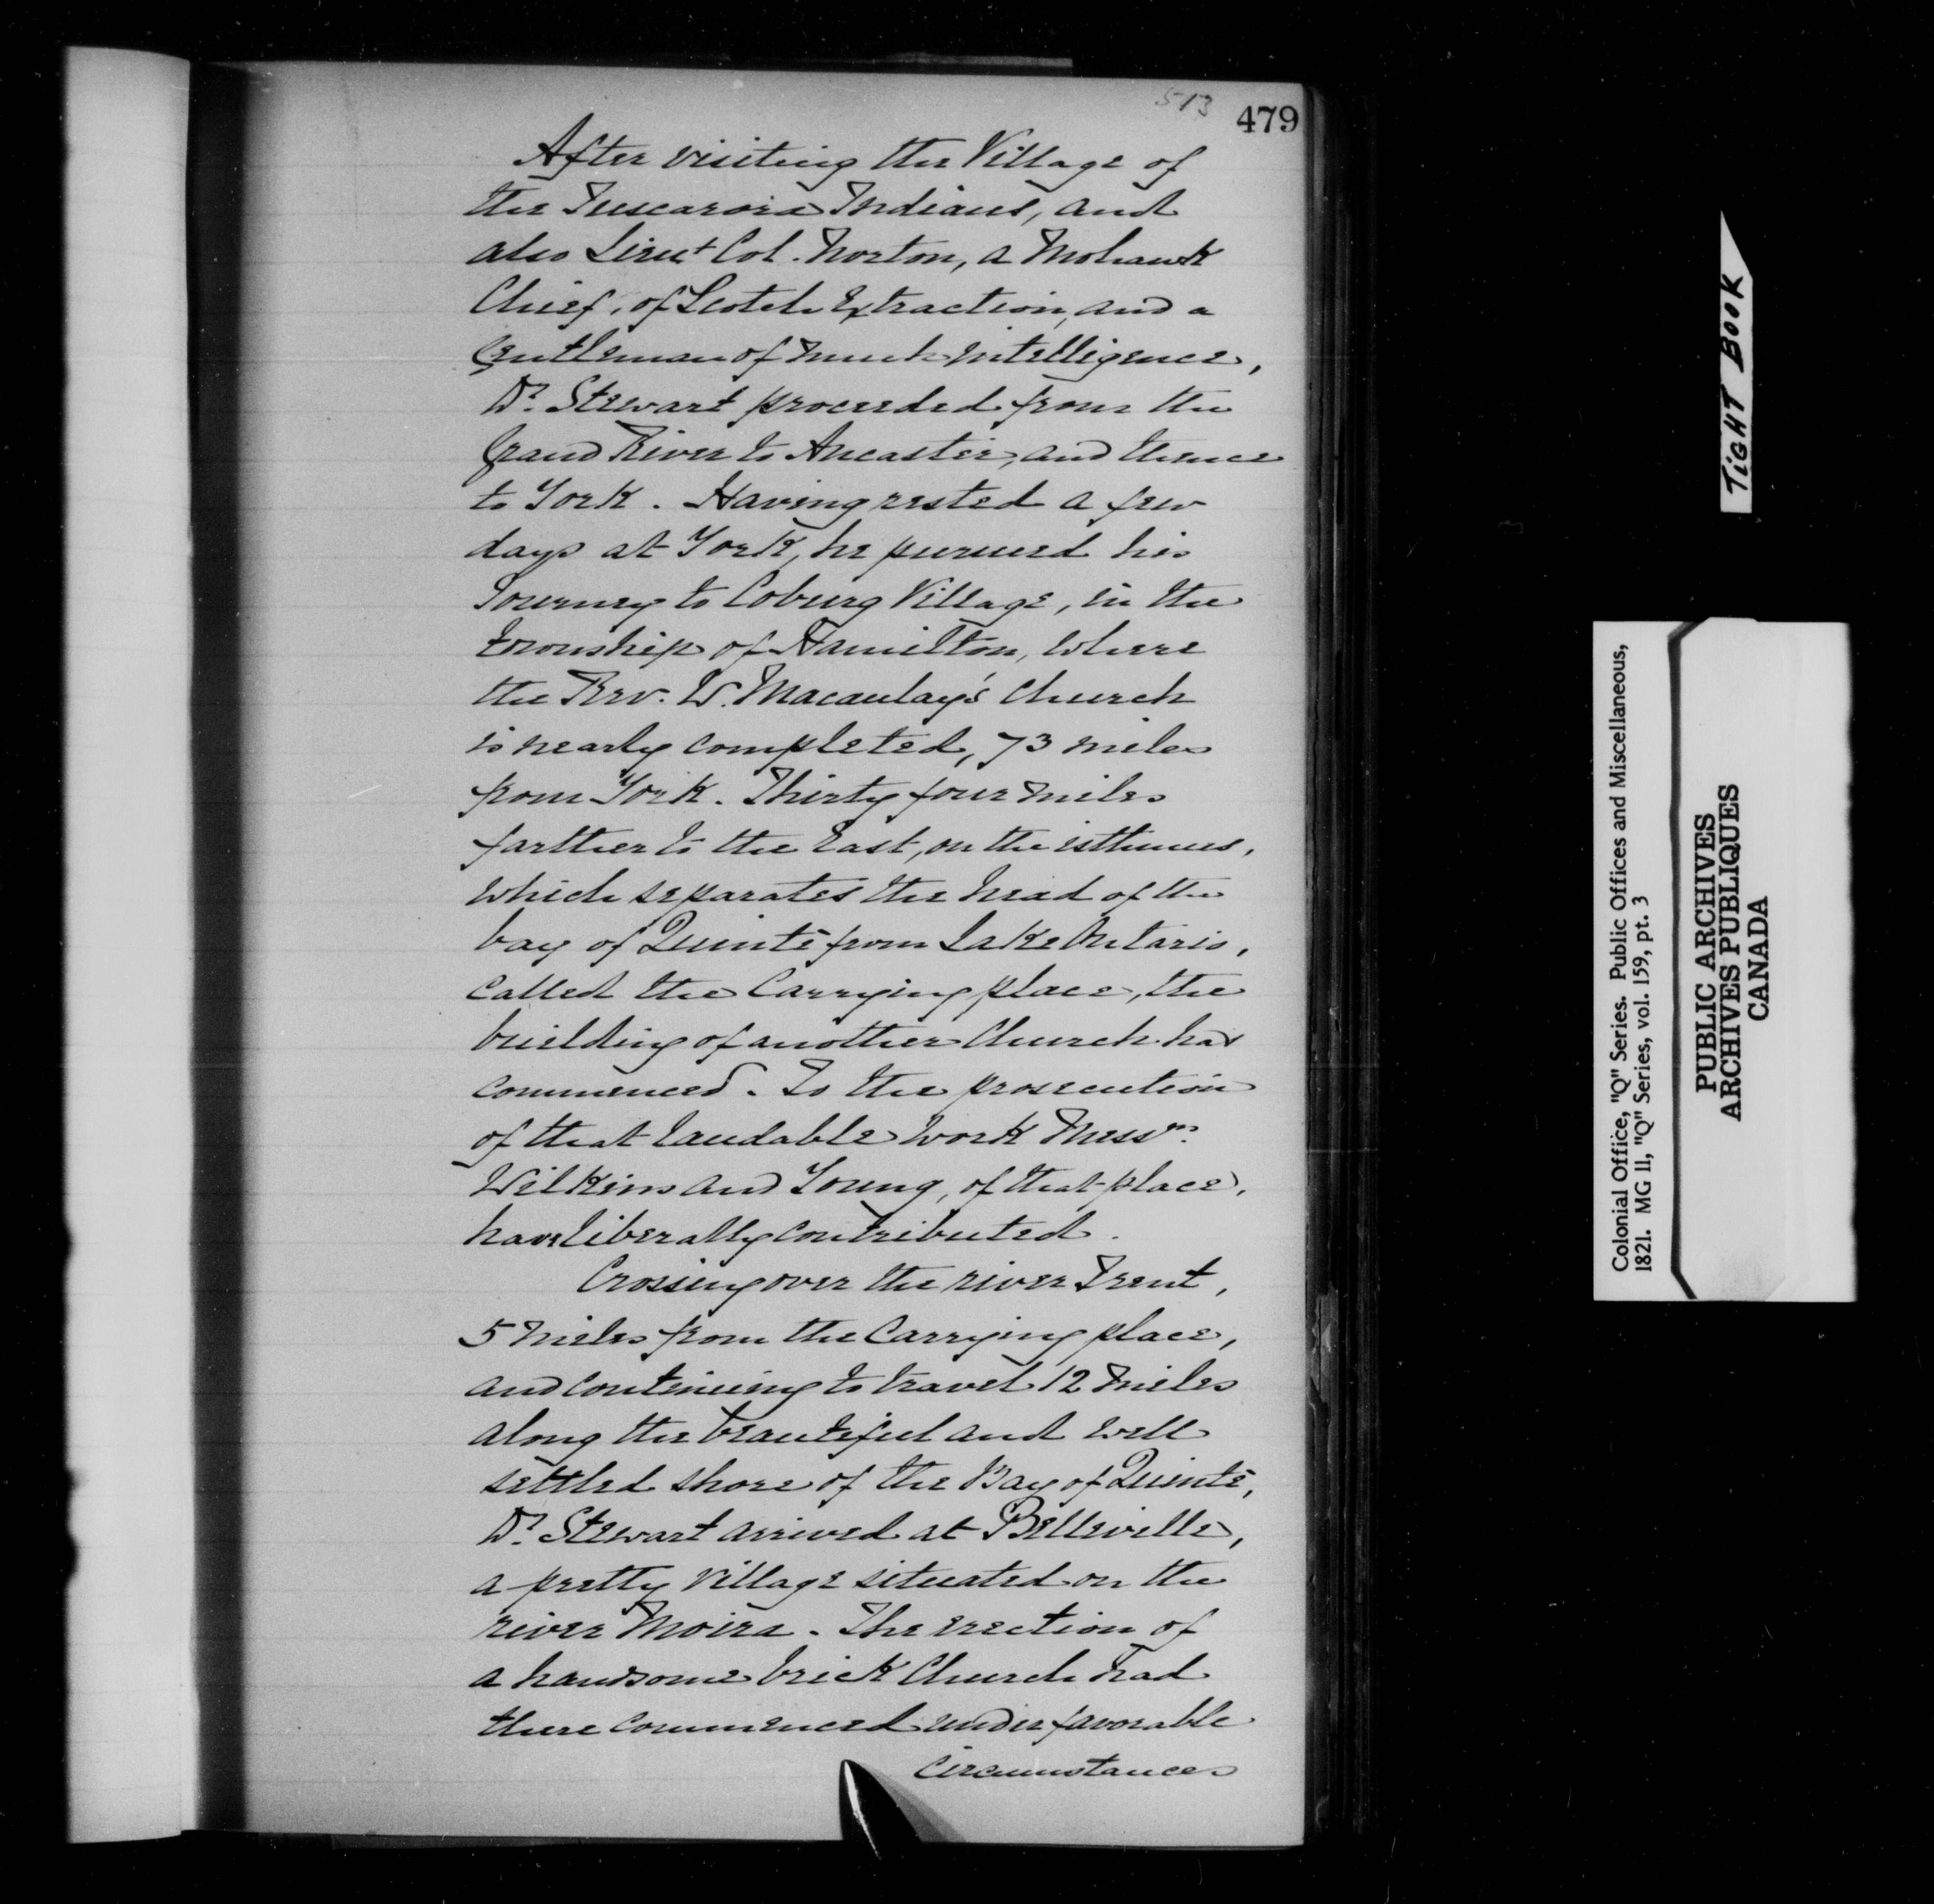 513
479
After visiting the Village of
the Tuscarora Indians, and
also Lieut Col. Norton, a Mohawk
Chief, of Scotch Extraction, and a
Gentleman of much intelligence,
Dr. Stewart proceeded from the
Grand River to Ancaster, and thence
to York. Having rested a few
days at York, he pursued his
Journey to Coburg Village, in the
township of Hamilton, where
the Rev. W. Macaulay's Church
is nearly completed, 73 miles
from York. Thirty four miles
farther to the East, on the isthmus,
which separates the head of the
bay of Quinté from Lake Ontario,
called the Carrying place, the
building of another Church has
commenced. To the prosecution
of that laudable work Messrs.
Wilkins and Young, of that place,
have liberally contributed.
Crossing over the river Trent,
5 miles from the Carrying place,
and continuing to travel 12 miles
along the beautiful and well
settled shore of the Bay of Quinté,
Dr. Stewart arrived at Belleville,
a pretty Village situated on the
river Moira. The erection of
a handsome brick Church had
there commenced under favorable
Circumstances
TIGHT BOOK
Colonial Office, "Q" Series. Public Offices and Miscellaneous,
1821. MG 11, "Q" Series, vol. 159, pt. 3
PUBLIC ARCHIVES
ARCHIVES PUBLIQUES
CANADA